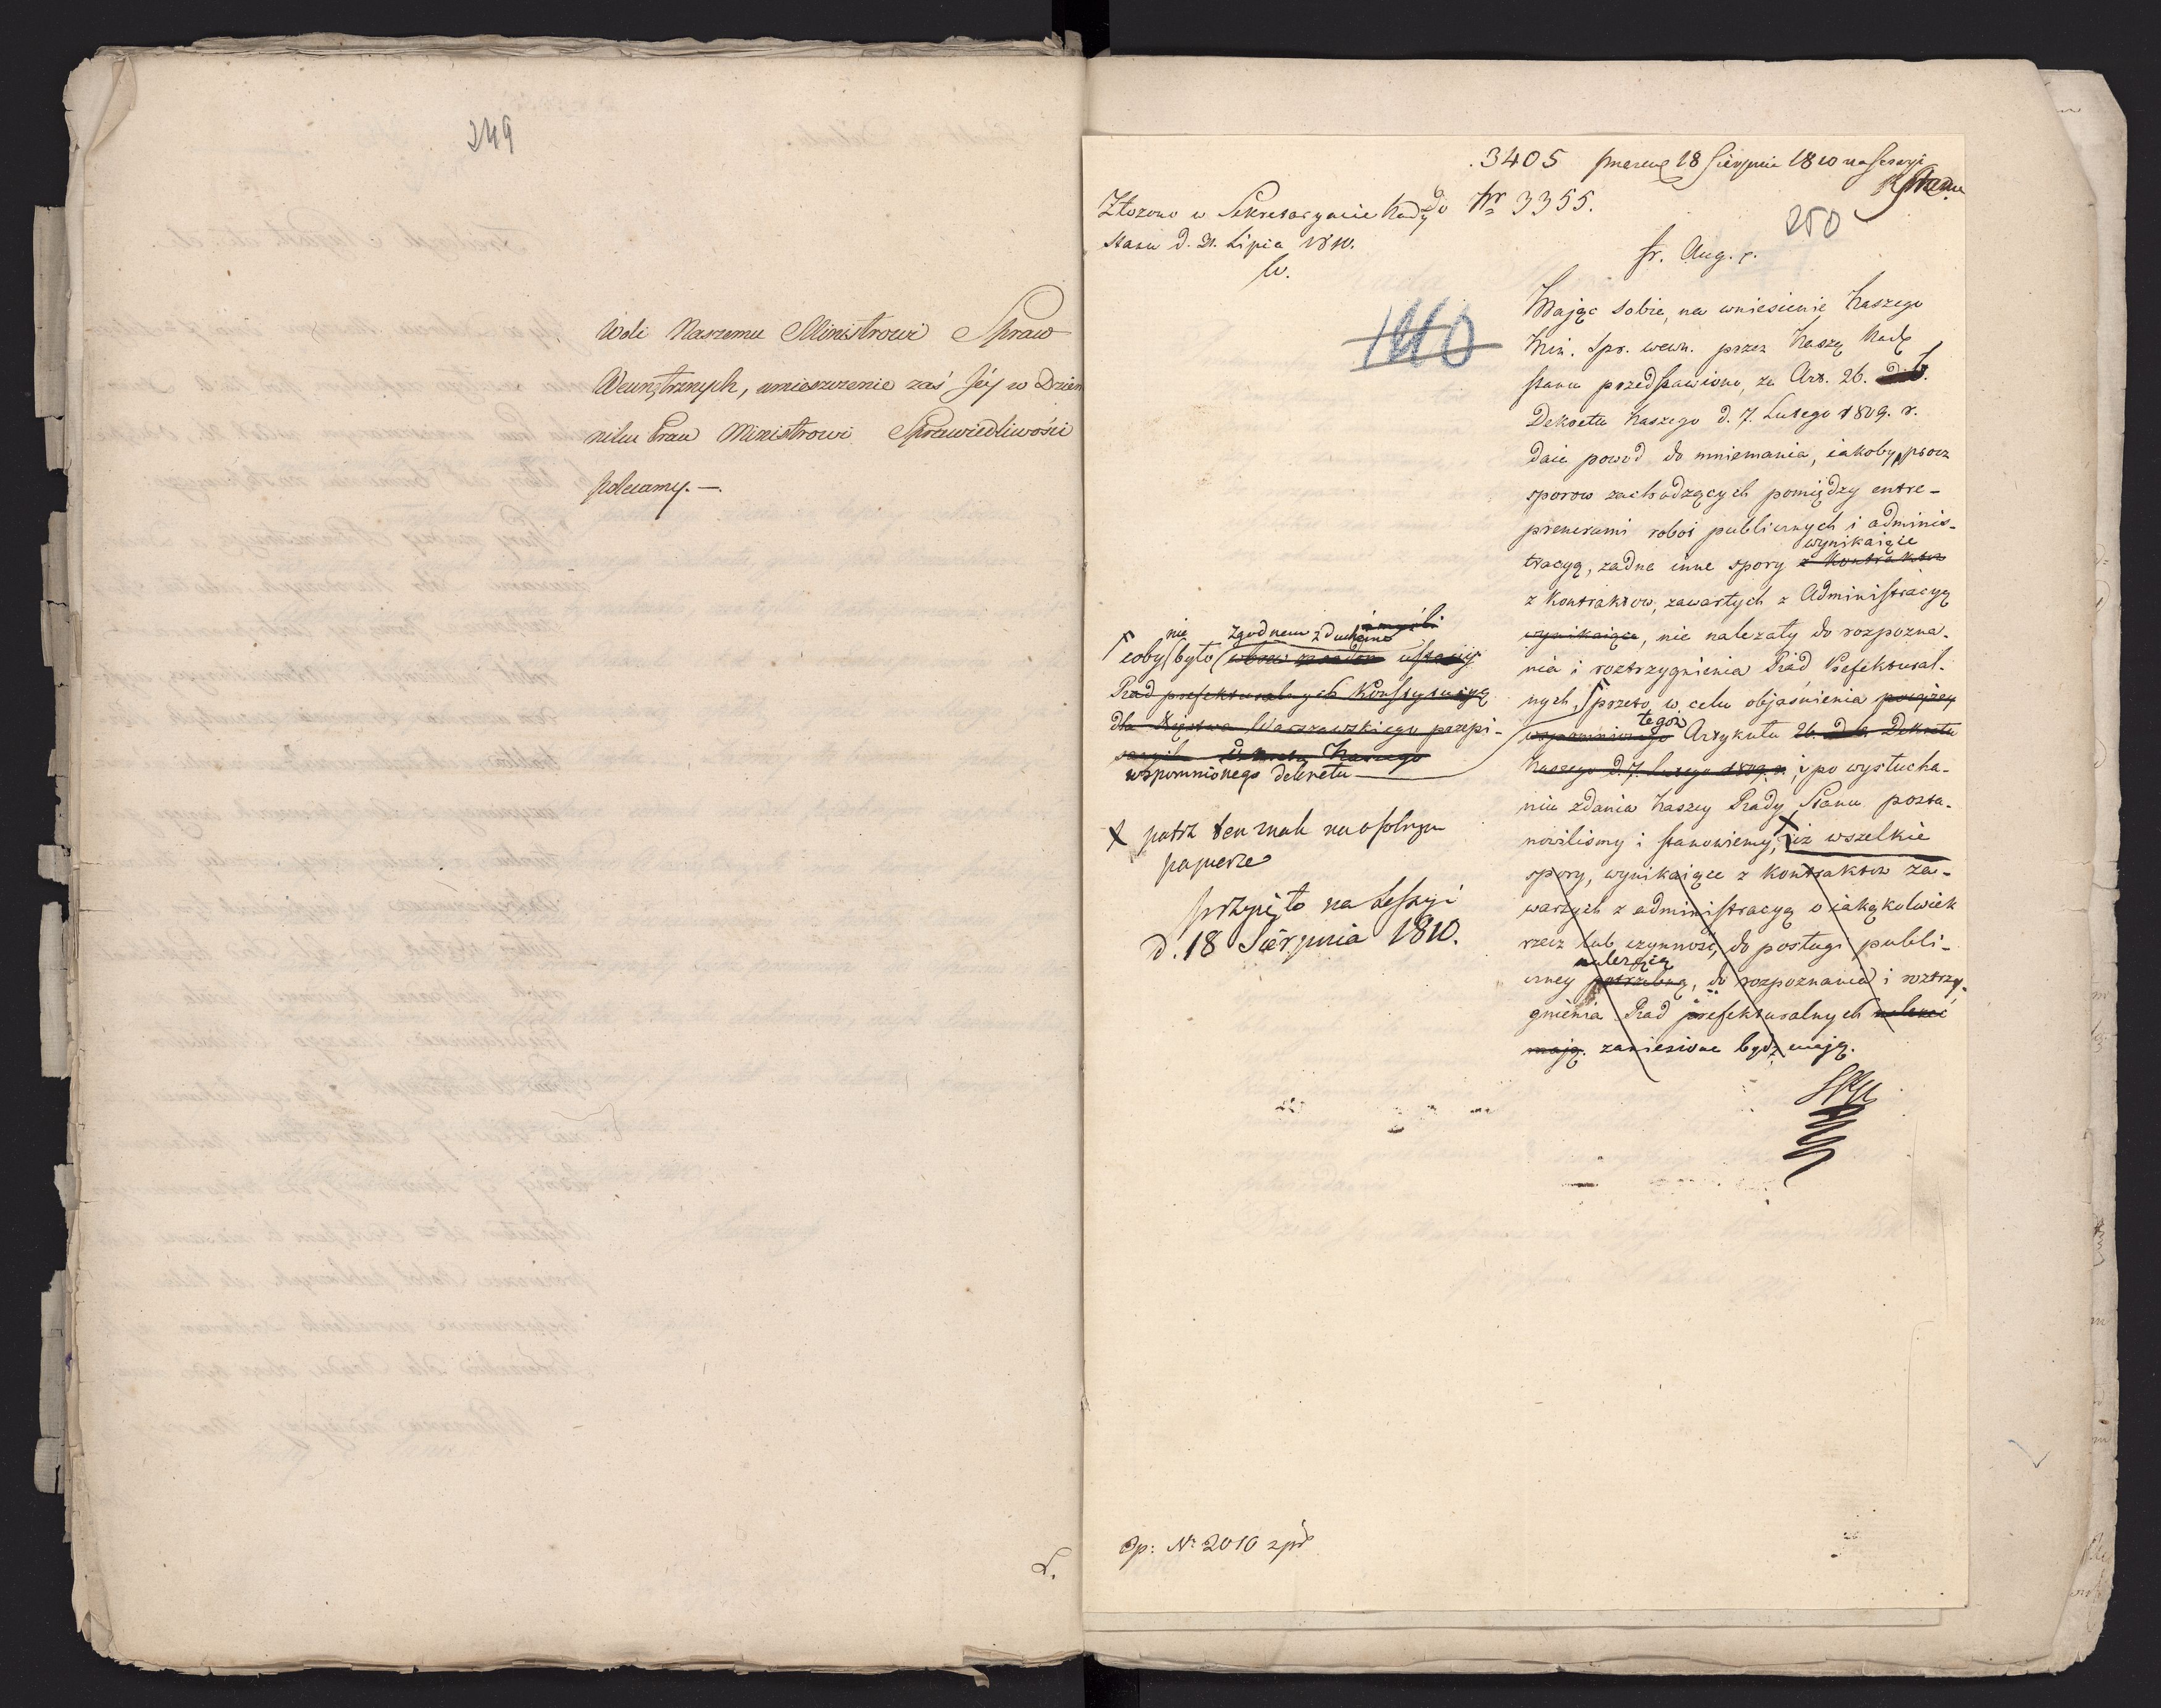 249
Woli Naszemu Ministrowi Spraw
Wewnętrznych, umieszczenie zaś Jéj w Dzien
niku Praw Ministrowi Sprawiedliwości
polecamy. —
L.
3405 18 Sierpnia 1810 na Sessyi
Złożono w Sekretaryacie Rady
Stanu d. 31. Lipca 1810.
do Nr 3355.
250
fr. Aug. r.
1110
Mając sobie, na wniesienie Naszego
Min. Spr. wewn. przez Naszę Radę
Stanu przedstawiono, że Art. 26.
Dekretu Naszego d. 7. Lutego 1809. r.
daie powód do mniemania, iakoby, procz
sporow zachodzących pomiędzy entre-
prenerami robot publicznych i adminis-
tracyą, żadne inne spory z Kontraktow
wynikaiące
z Kontraktow, zawartych z Administracyą
wynikaiące, nie należały do rozpozna-
nia i roztrzygnienia Rad Prefektural-
nych, przeto, w celu objaśnienia powyżey
wspomnionego Artykułu 26. d. 6. Dekretu
tegoż
Naszego d. 7. Lutego 1809. r. i po wysłucha-
niu zdania Naszey Rady Stanu posta-
nowiliśmy i stanowiemy, iż wszelkie
spory, wynikaiące z kontraktow za-
wartych z administracyą o iakąkolwiek
rzecz lub czynność, do posługi publi-
czney potrzebną, do rozpoznania i roztrzy-
należącą
gnienia Rad prefekturalnych należeć
mają. zaniesione bydź mają.
nie zgodnem z duchem
coby było wbrew ustawy
Rad prefekturalnych Konstytucyą
dla Xięstwa Warszawskiego przepi-
wspomnionego dekretu
X patrz ten znak na osobnym
papierze
przyięto na Sessyi
d. 18 Sierpnia 1810.
Nr 2010